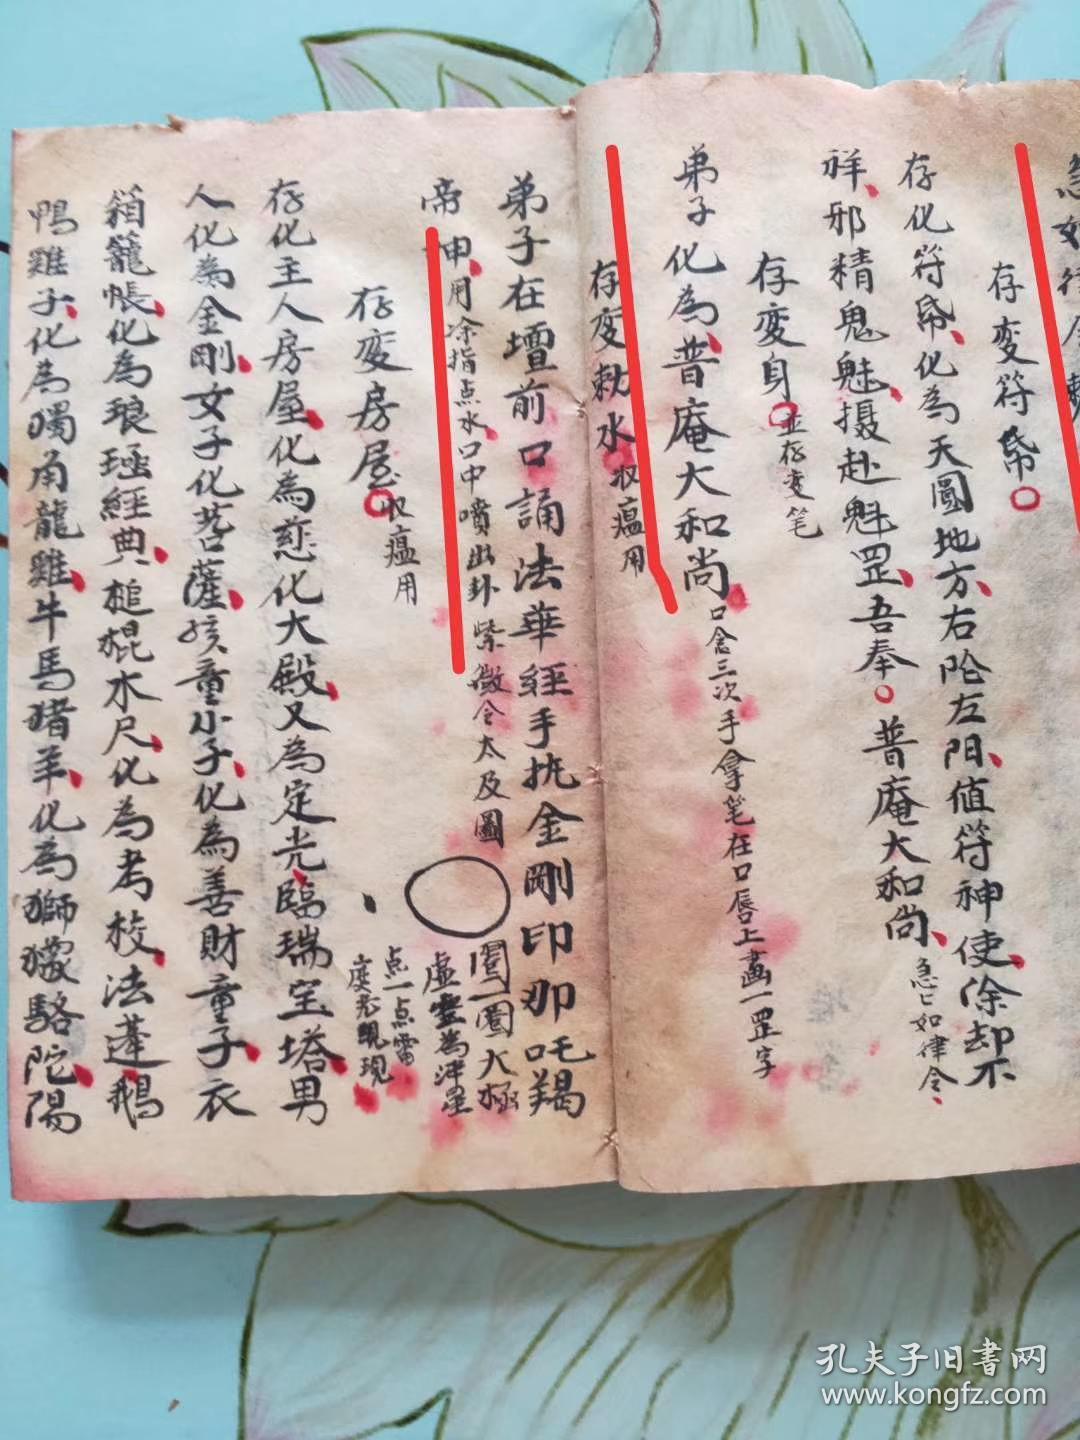 急如行令敕
存变符帋
存化符帋化為天圓地方右陰左阳値符神使除却不
祥邪精鬼魅摄赴魁罡吾奉 普庵大和尚 急匕如律令
存变身 並存变笔
弟子化為普庵大和尚 口念三次手拿笔在口唇上畵一罡字
存变敕水 収瘟用
弟子在壇前口誦法華経手执金剛印那吒羯
帝 用凃指点水口中噴出卦紫微令太及圖
圈一圈大極
虛
点一点雷
存变房屋 収瘟用
存化主人房屋化為慈化大殿又為定光臨瑞宝塔男
人化為金剛女子化菩薩孩童小子化為善財童子衣
箱籠帳化為琅 經典槌棍木尺化為考校法蓬鵝
鴨雞子化為獨角龍雞牛馬猪羊化為獅 駱陀陽
孔夫子旧書网
www.kongfz.com